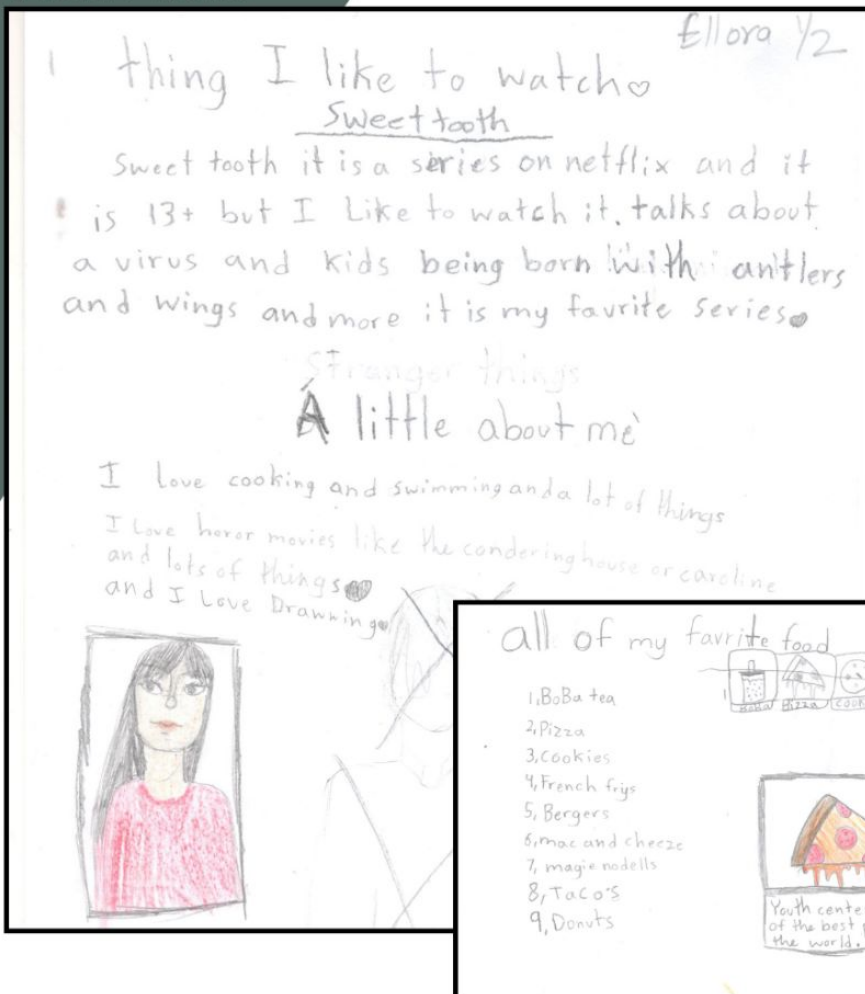 Ellora 1/2
1 thing I like to watch
Sweet tooth
Sweet tooth it is a series on netflix and it
is 13+ but I Like to watch it. talks about
a virus and kids being born with antlers
and wings and more it is my favrite series
Stranger things
A little about me
I Love cooking and swimming and a lot of things
I Love horor movies like the conderinghouse or caroline
and lots of things
and I Love Drawning
all of my favrite food
1, BoBa tea
2, Pizza
3, Cookies
4, French frys
5, Bergers
6, mac and cheeze
7, magie nodells
8, Taco's
9, Donuts
1
BoBa Pizza
Youth cente
of the best
the world.